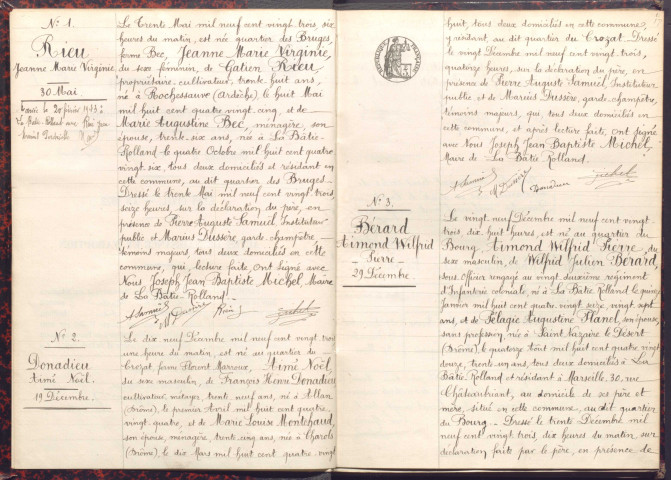 N° 1.
Rieu
Jeanne Marie Virginie
30 Mai
Le Trente Mai mil neuf cent vingt trois, six
heures du matin, est née quartier des Bruges,
ferme Bec, Jeanne Marie Virginie,
du sexe féminin, de Gatien Rieu,
propriétaire-cultivateur, trente huit ans,
né à Rochessauve (Ardèche) le huit Mai
mil huit cent quatre vingt cinq, et de
Marie Augustine Bec, ménagère son
épouse, trente six ans, née à La Bâtie-
Rolland le quatre Octobre mil huit cent quatre
vingt six, tous deux domiciliés et résidant en
cette commune, au dit quartier des Bruges.
Dressé le trente Mai mil neuf cent vingt trois
seize heures, sur la déclaration du père, en
présence de Pierre Auguste Samuel, Instituteur
public et Marius Dussère, garde-champêtre
témoins majeurs, tout deux domiciliés en cette
commune, qui, lecture faite, ont signé avec
Nous Joseph Jean Baptiste Michel, Maire
de La Bâtie-Rolland.
N° 2.
Donadieu
Aimé Noël.
19 Décembre.
Le dix neuf Décembre mil neuf cent vingt trois
une heure du matin, est né au quartier du
Crozat, ferme Florent Marroux, Aimé Noël
du sexe masculin, de François Henri Donadieu
cultivateur métayer, trente neuf ans, né à Allan
(Drôme), le premier Avril mil huit cent quatre
vingt quatre, et de Marie Louise Montchaud,
son épouse, ménagère, trente cinq ans, née à Charols
(Drôme), le dix Mars mil huit cent quatre vingt
huit, tous deux domiciliés en cette commune,
y résidant, au dit quartier du Crozat. Dressé
le vingt Décembre mil neuf cent vingt trois,
quatorze heures, sur la déclaration du père, en
présence de Pierre Auguste Samuel, Instituteur
public et de Marius Dussère, garde-champêtre,
témoins majeurs, qui, tous deux domiciliés en
cette commune, et après lecture faite, ont signé
avec Nous Joseph Jean Baptiste Michel,
Maire de La Bâtie Rolland.
Donadieu
N° 3.
Bérard
Aimond Wilfrid
Pierre
29 Décembre.
Le vingt neuf Décembre mil neuf cent vingt
trois, dix huit heures, est né au quartier du
Bourg, Aimond Wilfrid Pierre, du
sexe masculin, de Wilfrid Julien Bérard
sous-Officier rengagé au vingt deuxième régiment
d'Infanterie coloniale, né à La Bâtie Rolland le quinze
Janvier mil huit cent quatre vingt seize, vingt sept
ans, et de Pélagie Augustine Planel, son épouse,
sans profession, née à Saint Nazaire le Désert
(Drôme), le quatorze Août mil huit cent quatre vingt
douze, trente un ans, tous deux domiciliés à La
Bâtie Rolland et résidant à Marseille, 30, rue
Châteaubriant, au domicile de ses père et
mère, situé en cette commune, au dit quartier
du Bourg. Dressé le trente Décembre mil
neuf cent vingt trois, dix heures du matin, sur
déclaration faite par le père, en présence de